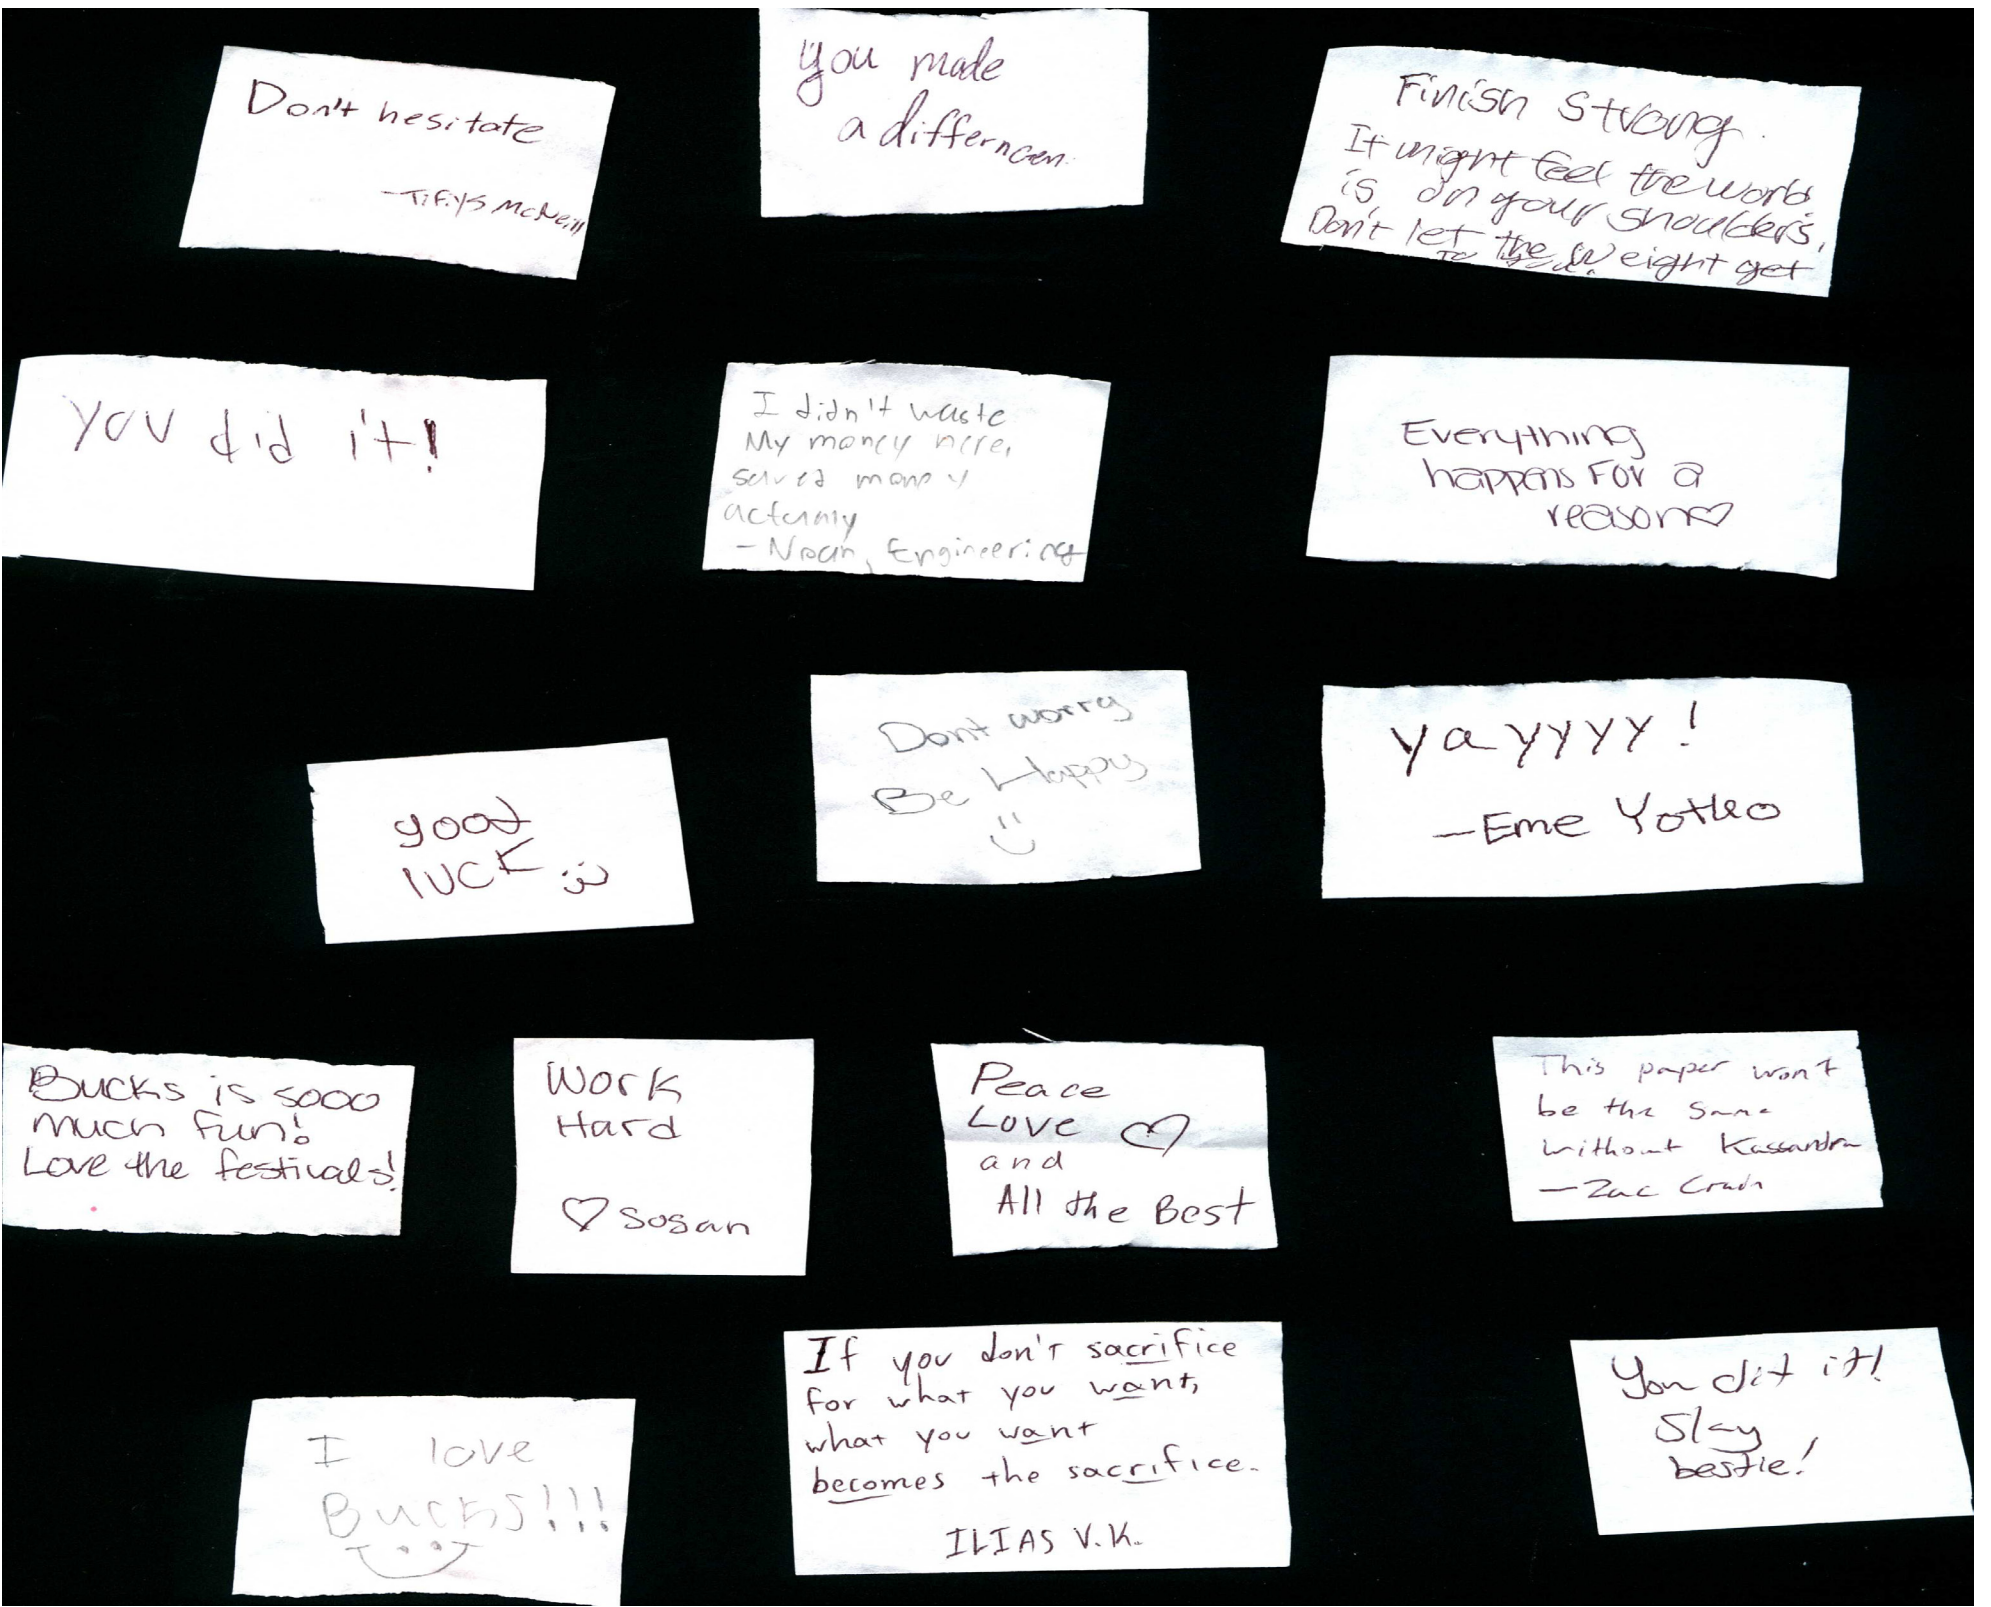 Don't hesitate
-Tifiys McNeill
you made
a differncen.
Finish Strong.
It might feel the world
is on your shoulders,
Don't let the weight get
to you.
you did it!
I didn't waste
My money here,
saved money
actually
- Noah, Engineering
Everything
happens For a
reason♡
good
luck :)
Dont worry
Be Happy
:)
yayyyy!
-Eme Yotko
Bucks is sooo
much fun!
Love the festivals!
Work
Hard
♡ Sosan
Peace
Love ♡
and
All the Best
This paper won't
be the same
without Kassandra
- Zac
I love
Bucks!!!
If you don't sacrifice
for what you want,
what you want
becomes the sacrifice.
ILIAS V.K.
You dit it!
Slay
bestie!